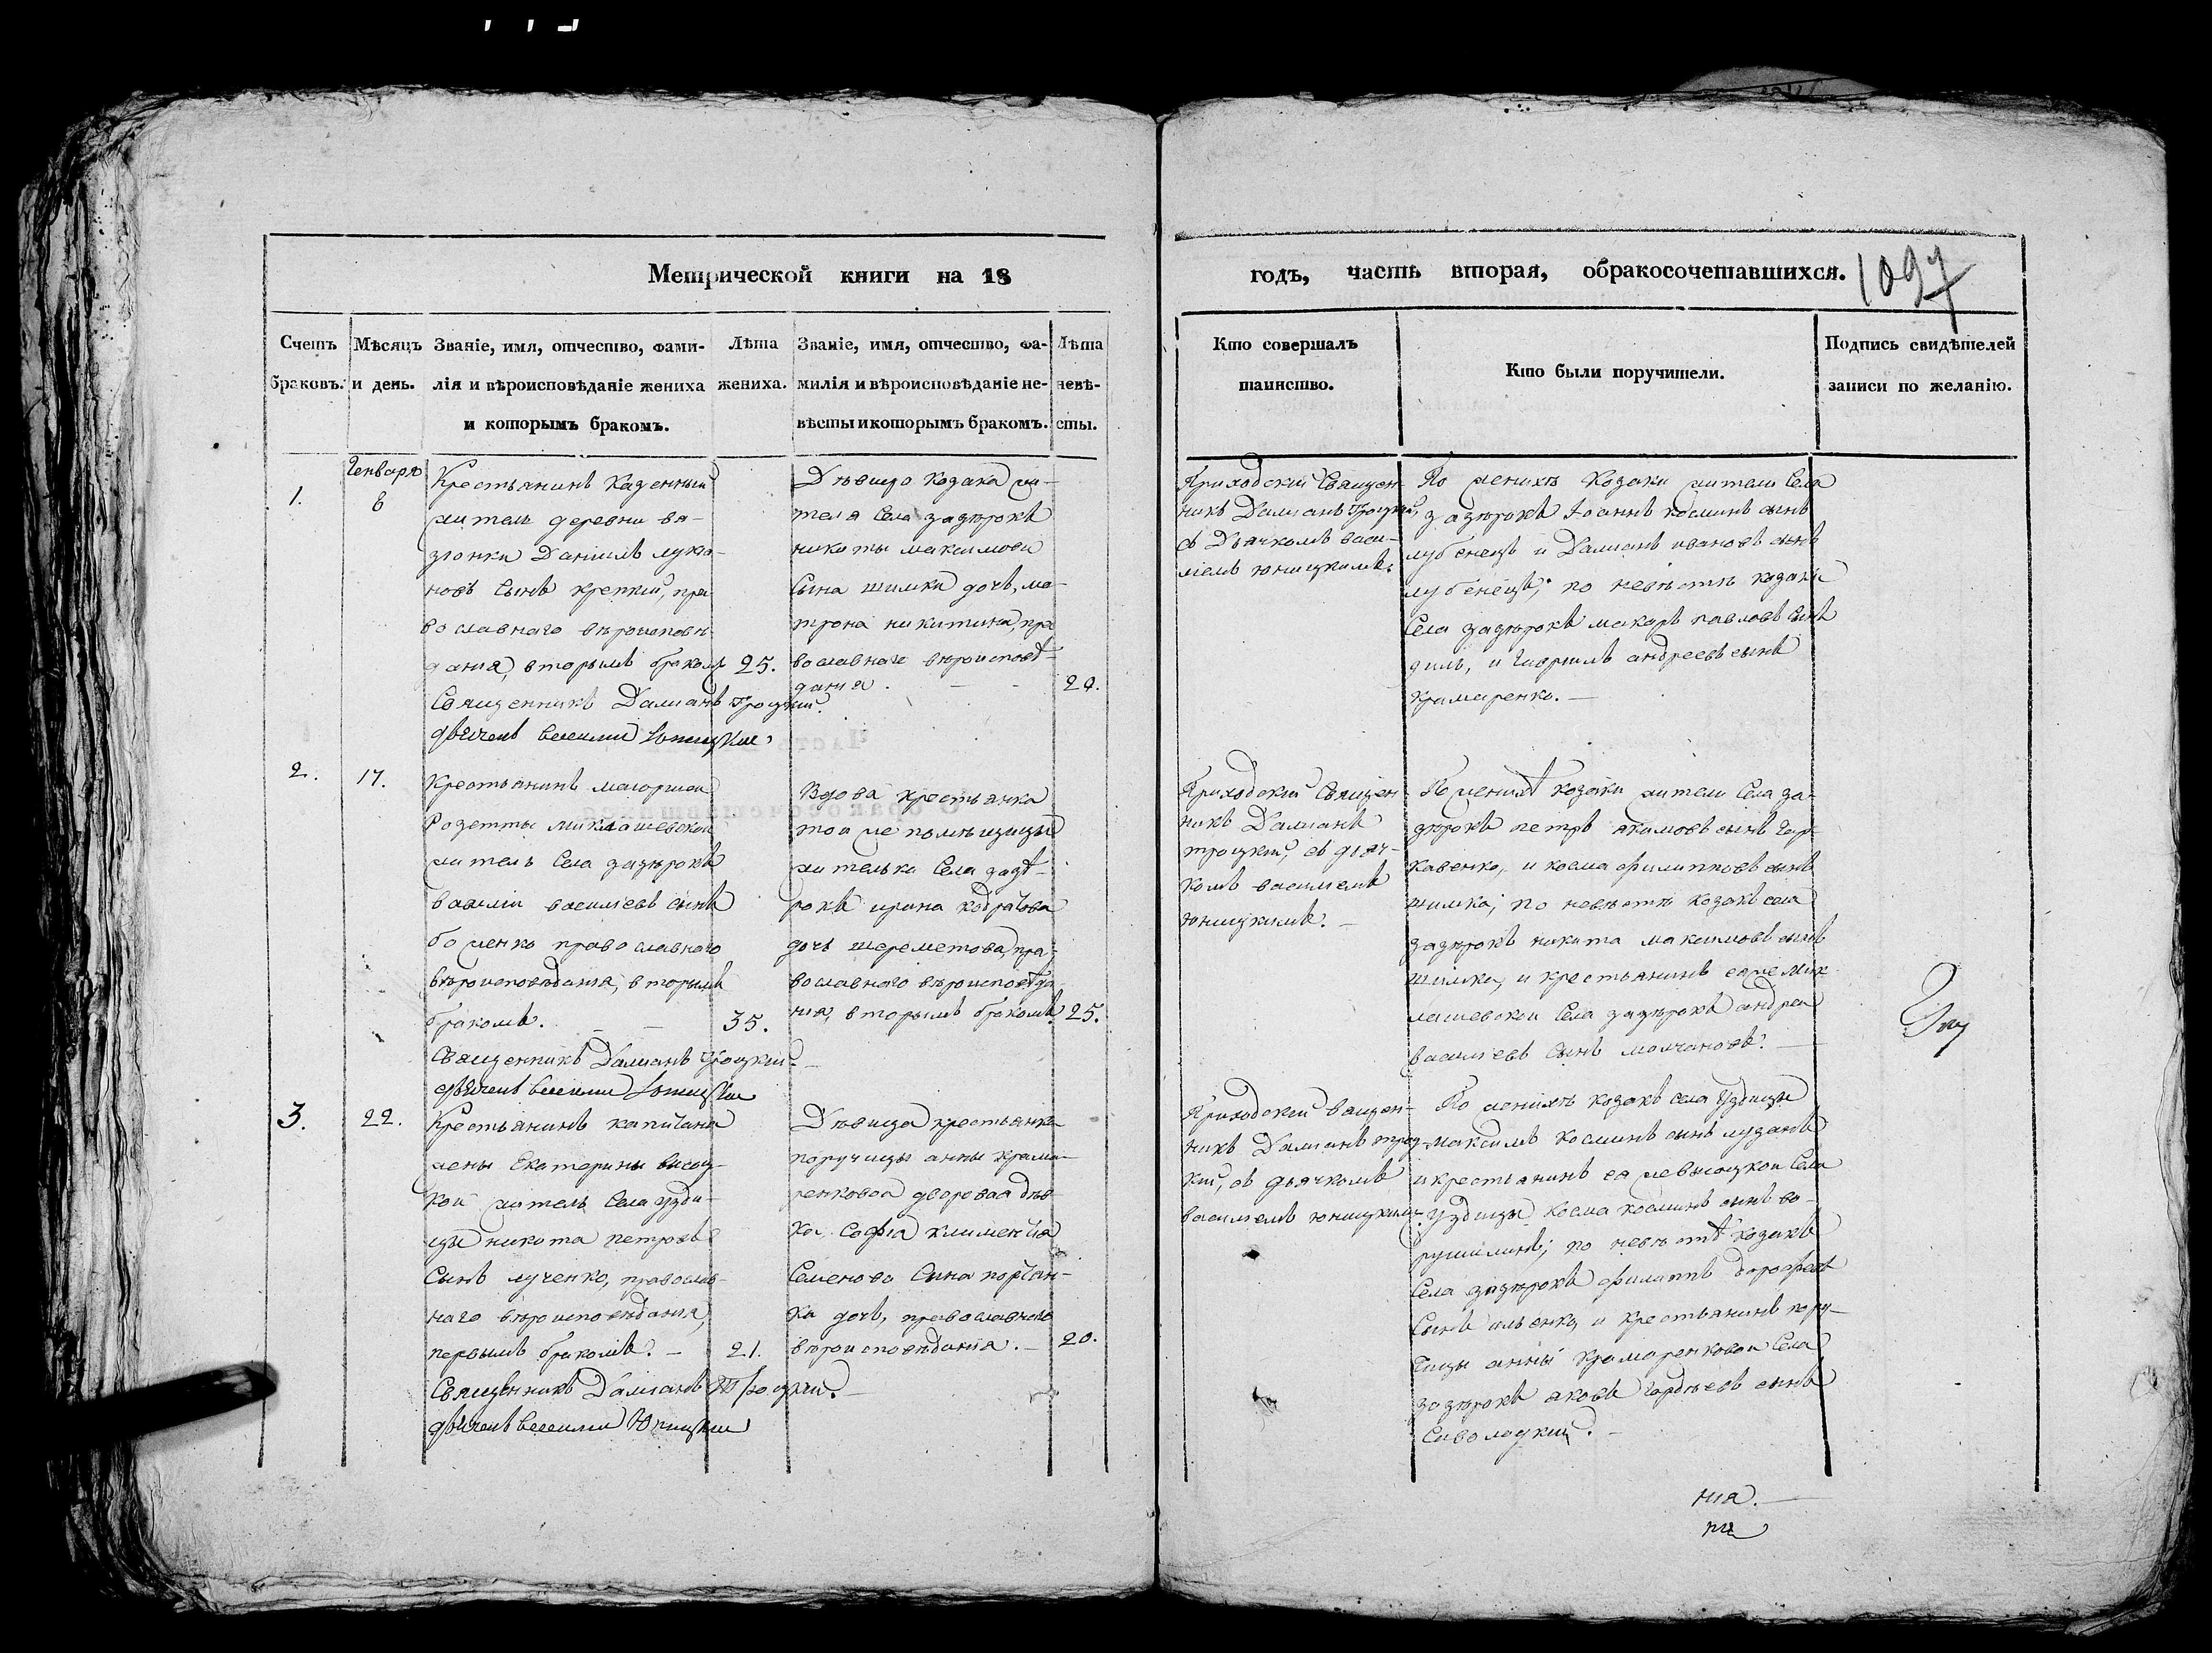 Метрической книги на 18
годъ, часть вторая, обракосочетавшихся.
1097
Счетъ
браковъ.
Мѣсяцъ
и день.
Званіе, имя, отчество, фами-
лія и вѣроисповѣданіе жениха
и которымъ бракомъ.
Лѣта
жениха.
Званіе, имя, отчество, фа-
милія и вѣроисповѣданіе не-
вѣсты и которымъ бракомъ.
Лѣта
невѣ-
сты.
Кто совершалъ
таинство.
Кто были поручители.
Подпись свидѣтелей
записи по желанію.
1.
Генваря
8
Крестьянинъ казенный
житель деревни вя-
зіонки Даніилъ
новъ сынъ крепкій, пра-
вославнаго вѣроисповѣ-
данія, вторымъ бракомъ
25.
Священникъ Даміанъ Троцкій.
дьячекъ Василій Юницкій
Дѣвица козака жи-
теля села задѣрокъ
никиты максимова
сына шимки дочь, ма-
трона никитина, пра-
вославнаго вѣроисповѣ-
данія.
20.
Приходскій Священ-
никъ Даміанъ Троцкій,
съ Дьячкомъ васи-
ліемъ юницкимъ.
По женихѣ козаки жители села
задѣрокъ Іоаннъ косминъ сынъ
лубенецъ и Даміанъ ивановъ сынъ
лубенецъ; по невѣстѣ козаки
села задѣрокъ макаръ павловъ сынъ
и Гавріилъ андреевъ сынъ
крамаренко.
2.
17.
Крестьянинъ маіорши
Розетты миклашевской
житель села задѣрокъ
василій василіевъ сынъ
боженко православнаго
вѣроисповѣданія, вторымъ
бракомъ.
35.
Священникъ Даміанъ Троцкій.
дьячекъ Василій Юницкій
Вдова крестьянка
той же помѣщицы
жителька села задѣ-
рокъ ирина кодратова
дочь шереметова, пра-
вославнаго вѣроисповѣда-
нія, вторымъ бракомъ.
25.
Приходскій Священ-
никъ Даміанъ
троцкій, съ дьяч-
комъ василіемъ
юницкимъ.
По женихѣ козаки жители села за-
дѣрокъ петръ якимовъ сынъ гар-
кавенко, и косма филипповъ сынъ
шимка; по невѣстѣ козакъ села
задѣрокъ никита максимовъ сынъ
шимка, и крестьянинъ ея же мик-
лашевской села задѣрокъ андрей
василіевъ сынъ молчановъ.
3.
22.
Крестьянинъ капитана
жены Екатерины высоц-
кой житель села узди-
цы никита петровъ
сынъ лученко, православ-
наго вѣроисповѣданія,
первымъ бракомъ.
21.
Священникъ Даміанъ Троцкій.
дьячекъ Василій Юницкій
Дѣвица крестьянка
поручицы анны крама-
ренковой дворовая дѣв-
ка Софія климентія
Семенова сына портян-
ки дочь, православнаго
вѣроисповѣданія.
20.
Приходскій священ-
никъ Даміанъ троц-
кій, съ дьячкомъ
василіемъ юницкимъ.
По женихѣ козакъ села Уздицы
максимъ косминъ сынъ лузанъ
и крестьянинъ ея же высоцкой села
Уздицы косма косминъ сынъ во-
рушилинъ; по невѣстѣ козакъ
села задѣрокъ филиппъ дорофеевъ
сынъ ильенко, и крестьянинъ пору-
чицы анны крамаренковой села
задѣрокъ яковъ гордѣевъ сынъ
Сиволоцкій.
нія.